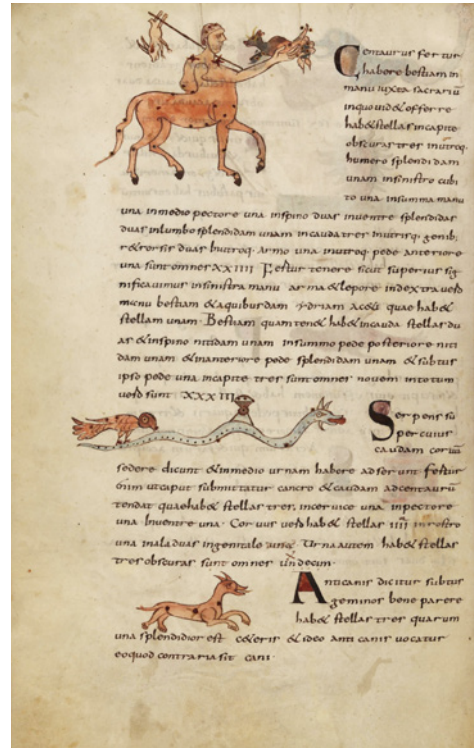 Centaurus fertur
habere bestiam in
manu iuxta sacrariū
inquo uidet offerre
habet stellas incapite
obscuras tres inutroq;
humero splendidam
unam insinistro cubi
to una insumma manu
una inmedio pectore una inspino duas inuentre splendidas
duas inlumbo splendidam unam incauda tres inutrisq; genib;
retrorsis duas inutroq; armo una inutroq; pede anteriore
una sunt omnes XX IIII Fertur tenere sicut superius sig
nificauimus insinistra manu arma & lepore indextra uero
bestiam & aquibusdam ydriam quae habet
stellam unam. Bestiam quam tenet habet incauda stellas du
as & inspino nitidam unam insummo pede posteriore niti
dam unam & inanteriore pede splendidam unam & subtus
ipso pede una incapite tres sunt omnes nouem intotum
uero sunt XXX III
Serpens su
per cuius
caudam coruū
sedere dicunt & inmedio urnam habere adserunt fertur
enim ut caput submittatur cancro & caudam ad centaurū
tendat quae habet stellas tres, inceruice una inpectore
una Inuentre una. Coruus uero habet stellas IIII inrostro
una inala duas ingenitale una. Urna autem habet stellas
tres obscuras sunt omnes undecim.
Anticanis dicitur subtus
geminos bene parere
habet stellas tres quarum
una splendidior est ceteris & ideo anti canis uocatur
eoquod contraria sit cani.